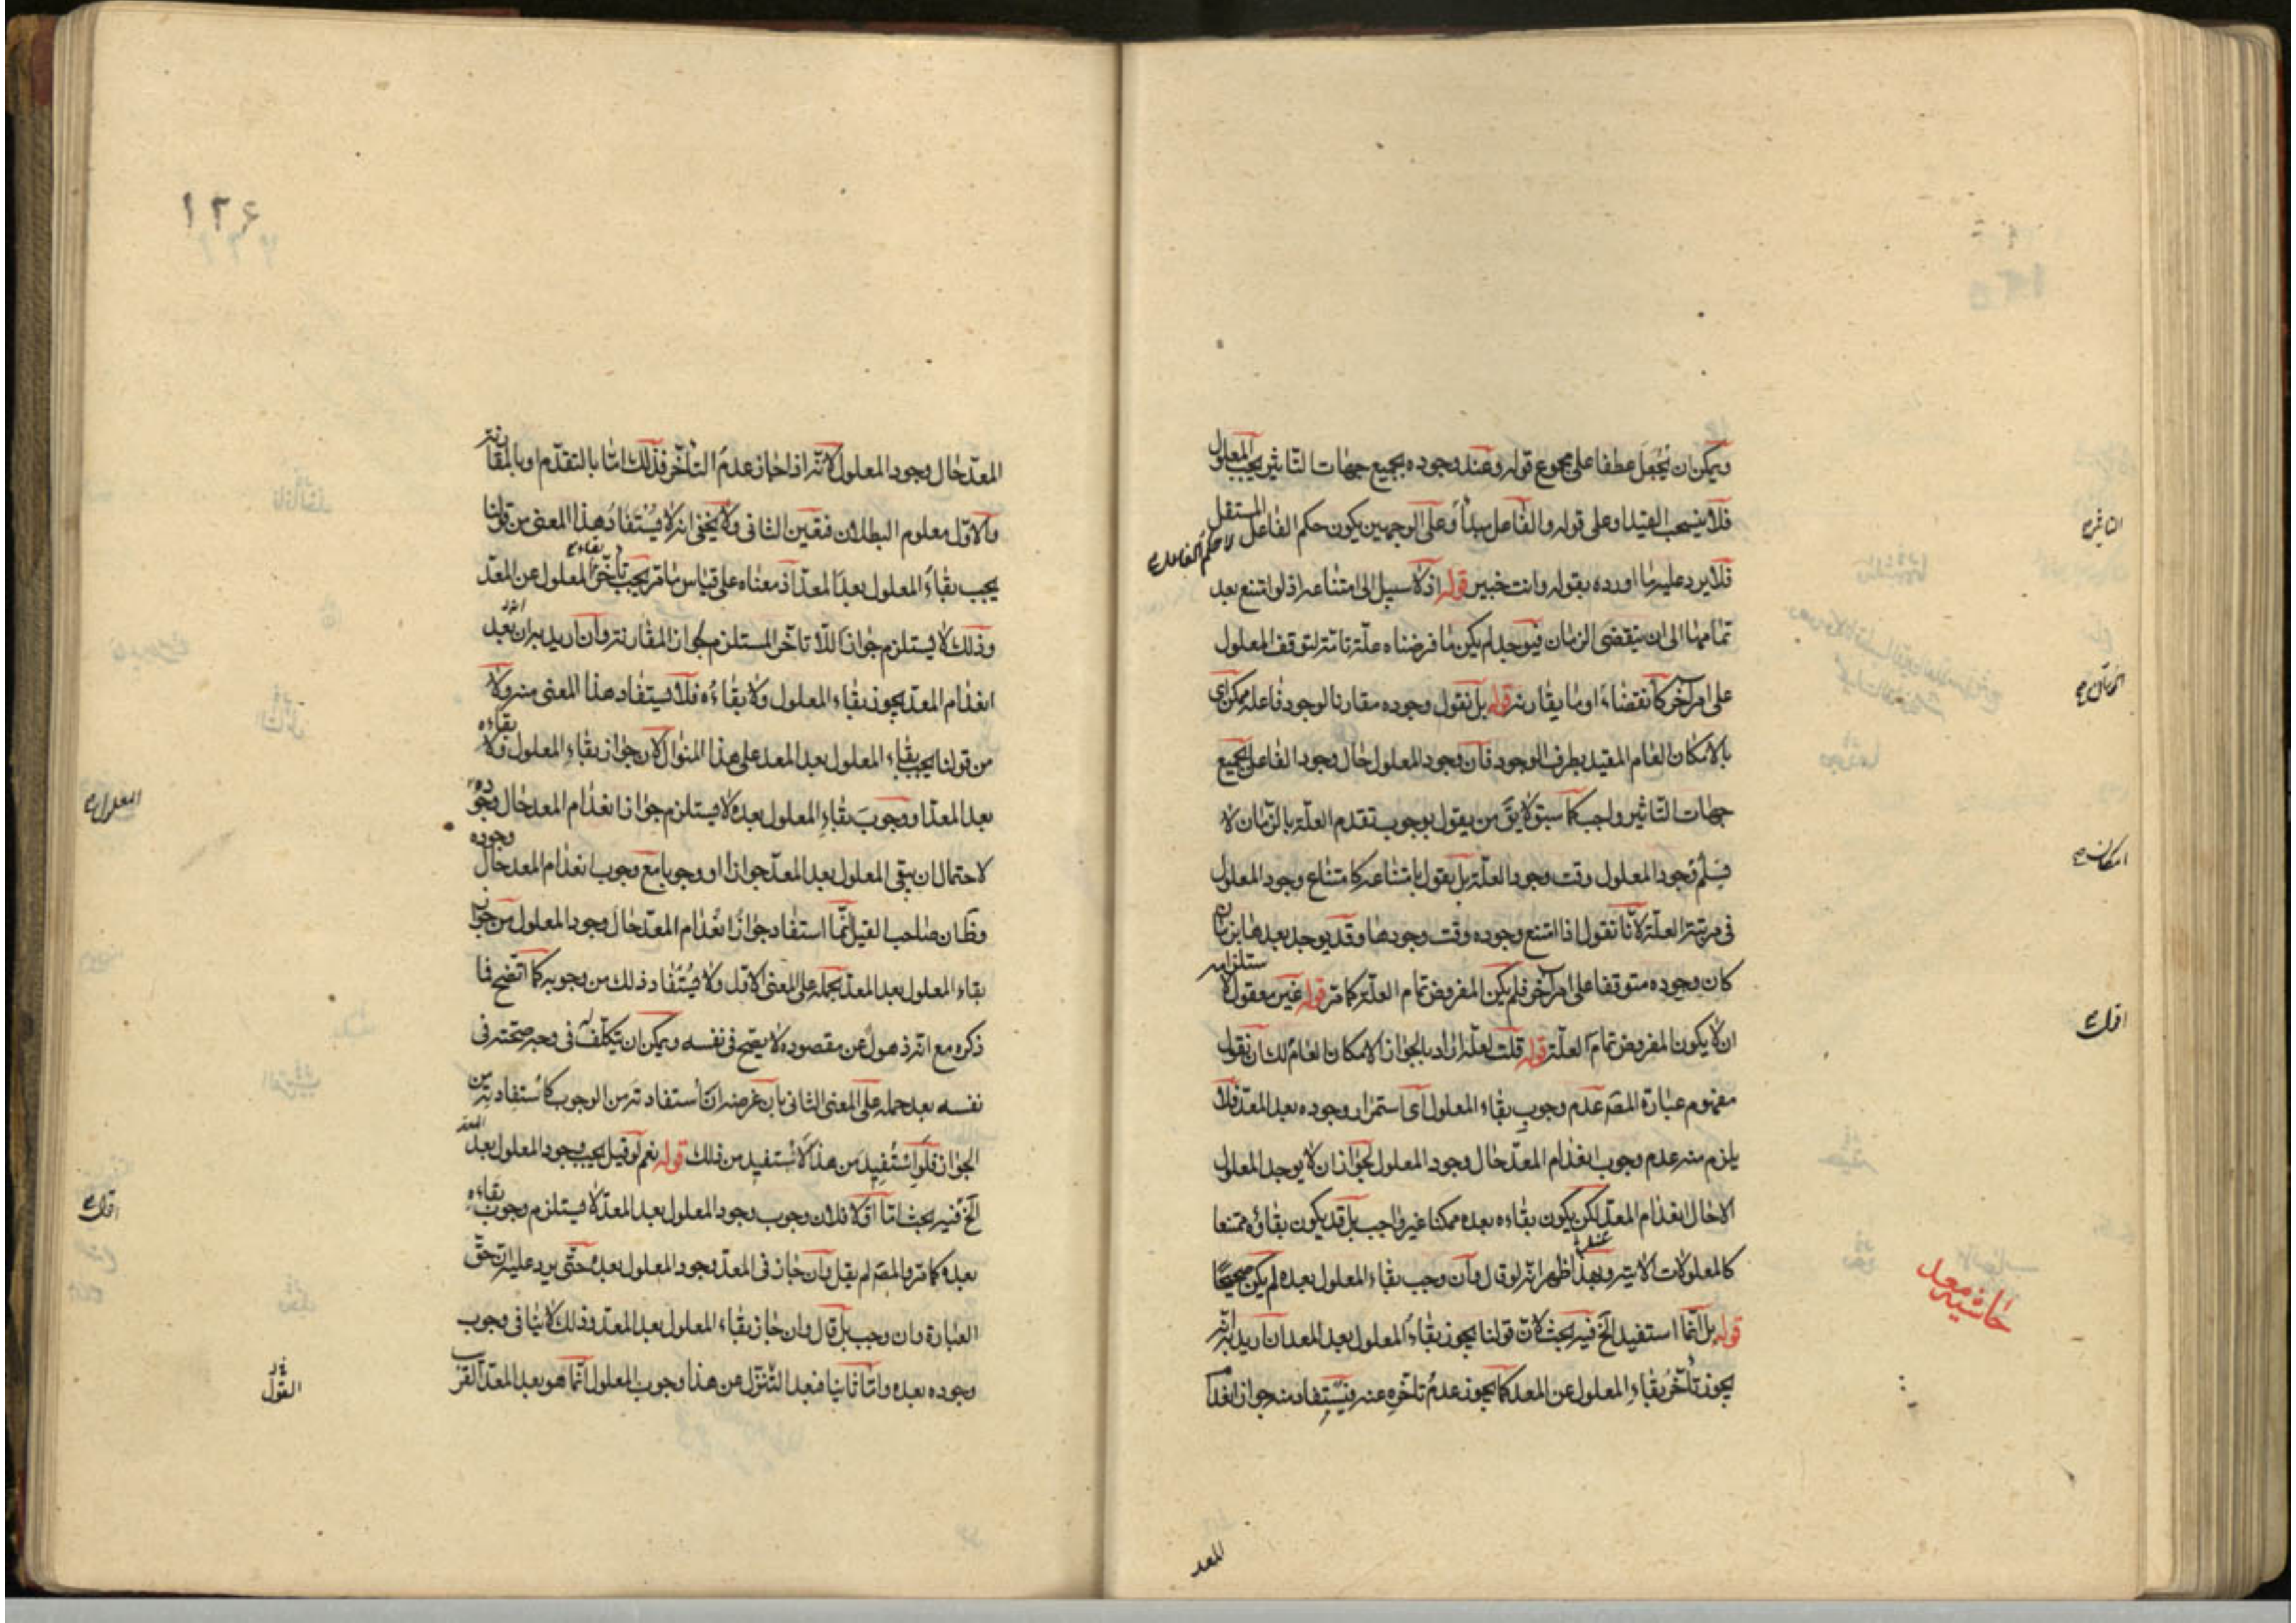 ويمكن ان يجعل عطفا على مجموع قوله وعند وجوده بجميع جهات التاثير يجب المعلول
فلا ينسحب القيد او على قوله والفاعل مبدأ وعلى الوجهين يكون حكم الفاعل المستقل
لا حكم الفاعل
فلا يرد عليه ما اورده بقوله وانت خبير قوله اذ لا سبيل الى امتناعه اذ لو امتنع بعد
تمامها الى ان ينقضى الزمان فيوجد لم يكن ما فرضناه علة تامة لتوقف المعلول
على امر آخر كانقضاء او ما يقارنه قوله بل نقول وجوده مقارنا لوجود فاعله ممكن اى
بالامكان العام المقيد بطرف الوجود فان وجود المعلول حال وجود الفاعل بجميع
جهات التاثير واجب كما سبق لا يق من يقول بوجوب تقدم العلة بالزمان لا
يسلم وجود المعلول وقت وجود العلة بل يقول بامتناعه كامتناع وجود المعلول
فى مرتبة العلة لانا نقول اذا امتنع وجوده وقت وجودها وقد يوجد بعدها بزمان
كان وجوده متوقفا على امر آخر فلم يكن المفروض تمام العلة كما مر قوله غير معقول لاستلزامه
ان لا يكون المفروض تمام العلة قوله قلت لعله اراد بالجواز الامكان العام لك ان نقول
مفهوم عبارة المصـ عدم وجوب بقاء المعلول اى استمرار وجوده بعد المعد فلا
يلزم منه عدم وجوب انعدام المعد حال وجود المعلول لجواز ان لا يوجد المعلول
الا حال انعدام المعد لكن يكون بقاءه بعده ممكنا غير واجب بل قد يكون بقاؤه ممتنعا
كالمعلولات الانية وبهذا ظهر انه لو قال وان وجب بقاء المعلول بعده لم يكن صحيحا
قوله بل انما استفيد الخ فيه بحث لان قولنا يجوز بقاء المعلول بعد المعد ان اريد به انه
يجوز تأخر بقاء المعلول عن المعد كما يجوز عدم تاخره عنه فيستفاد منه جواز انعدام
المعد
امكان
حاشيه معد
١٢٦
المعد حال وجود المعلول لانه اذا جاز عدم التأخر فذلك اما بالتقدم او بالمقارنة
والاول معلوم البطلان فتعين الثانى ولا يخفى انه لا يستفاد هذا المعنى من قولنا
يجب بقاء المعلول بعد المعد اذ معناه على قياس ما مر يجب تأخر بقاء المعلول عن المعد
وذلك لا يستلزم جواز اللا تاخر المستلزم لجواز المقارنة وان اريد به ان بعد
انعدام المعد يجوز بقاء المعلول ولا بقاءه فلا يستفاد هذا المعنى منه ولا
من قولنا يجب بقاء المعلول بعد المعد على هذا المنوال لان جواز بقاء المعلول ولا بقاءه
بعد المعد او وجوب بقاء المعلول بعده لا يستلزم جواز انعدام المعد حال وجوده
لاحتمال ان يبقى المعلول بعد المعد جوازا او وجوبا مع وجوب انعدام المعد حال وجوده
وظان صاحب القيل انما استفاد جواز انعدام المعد حال وجود المعلول من جواز
بقاء المعلول بعد المعد بحمله على المعنى الاول ولا يستفاد ذلك من وجوبه كما اتضح فما
ذكره مع انه ذهول عن مقصوده لا يصح فى نفسه ويمكن ان يتكلف له فى وجه صحته فى
نفسه بعد حمله على المعنى الثانى بان غرضه ان استفادته من الوجوب كاستفادته من
الجواز فلو استفيد من هذا لاستفيد من ذلك قوله نعم لو قيل يجب وجود المعلول بعد المعد
الخ فيه بحث اما اولا فلان وجوب وجود المعلول بعد المعد لا يستلزم وجوب بقاءه
بعده كما مر والمصـ لم يقل وان جاز فى المعد وجود المعلول بعده حتى يرد عليه ان حق
العبارة وان وجب بل قال وان جاز بقاء المعلول بعد المعد وذلك لا ينافى وجوب
وجوده بعده واما ثانيا فبعد التنزل عن هذا وجوب المعلول انما هو بعد المعد القريب
المعلول